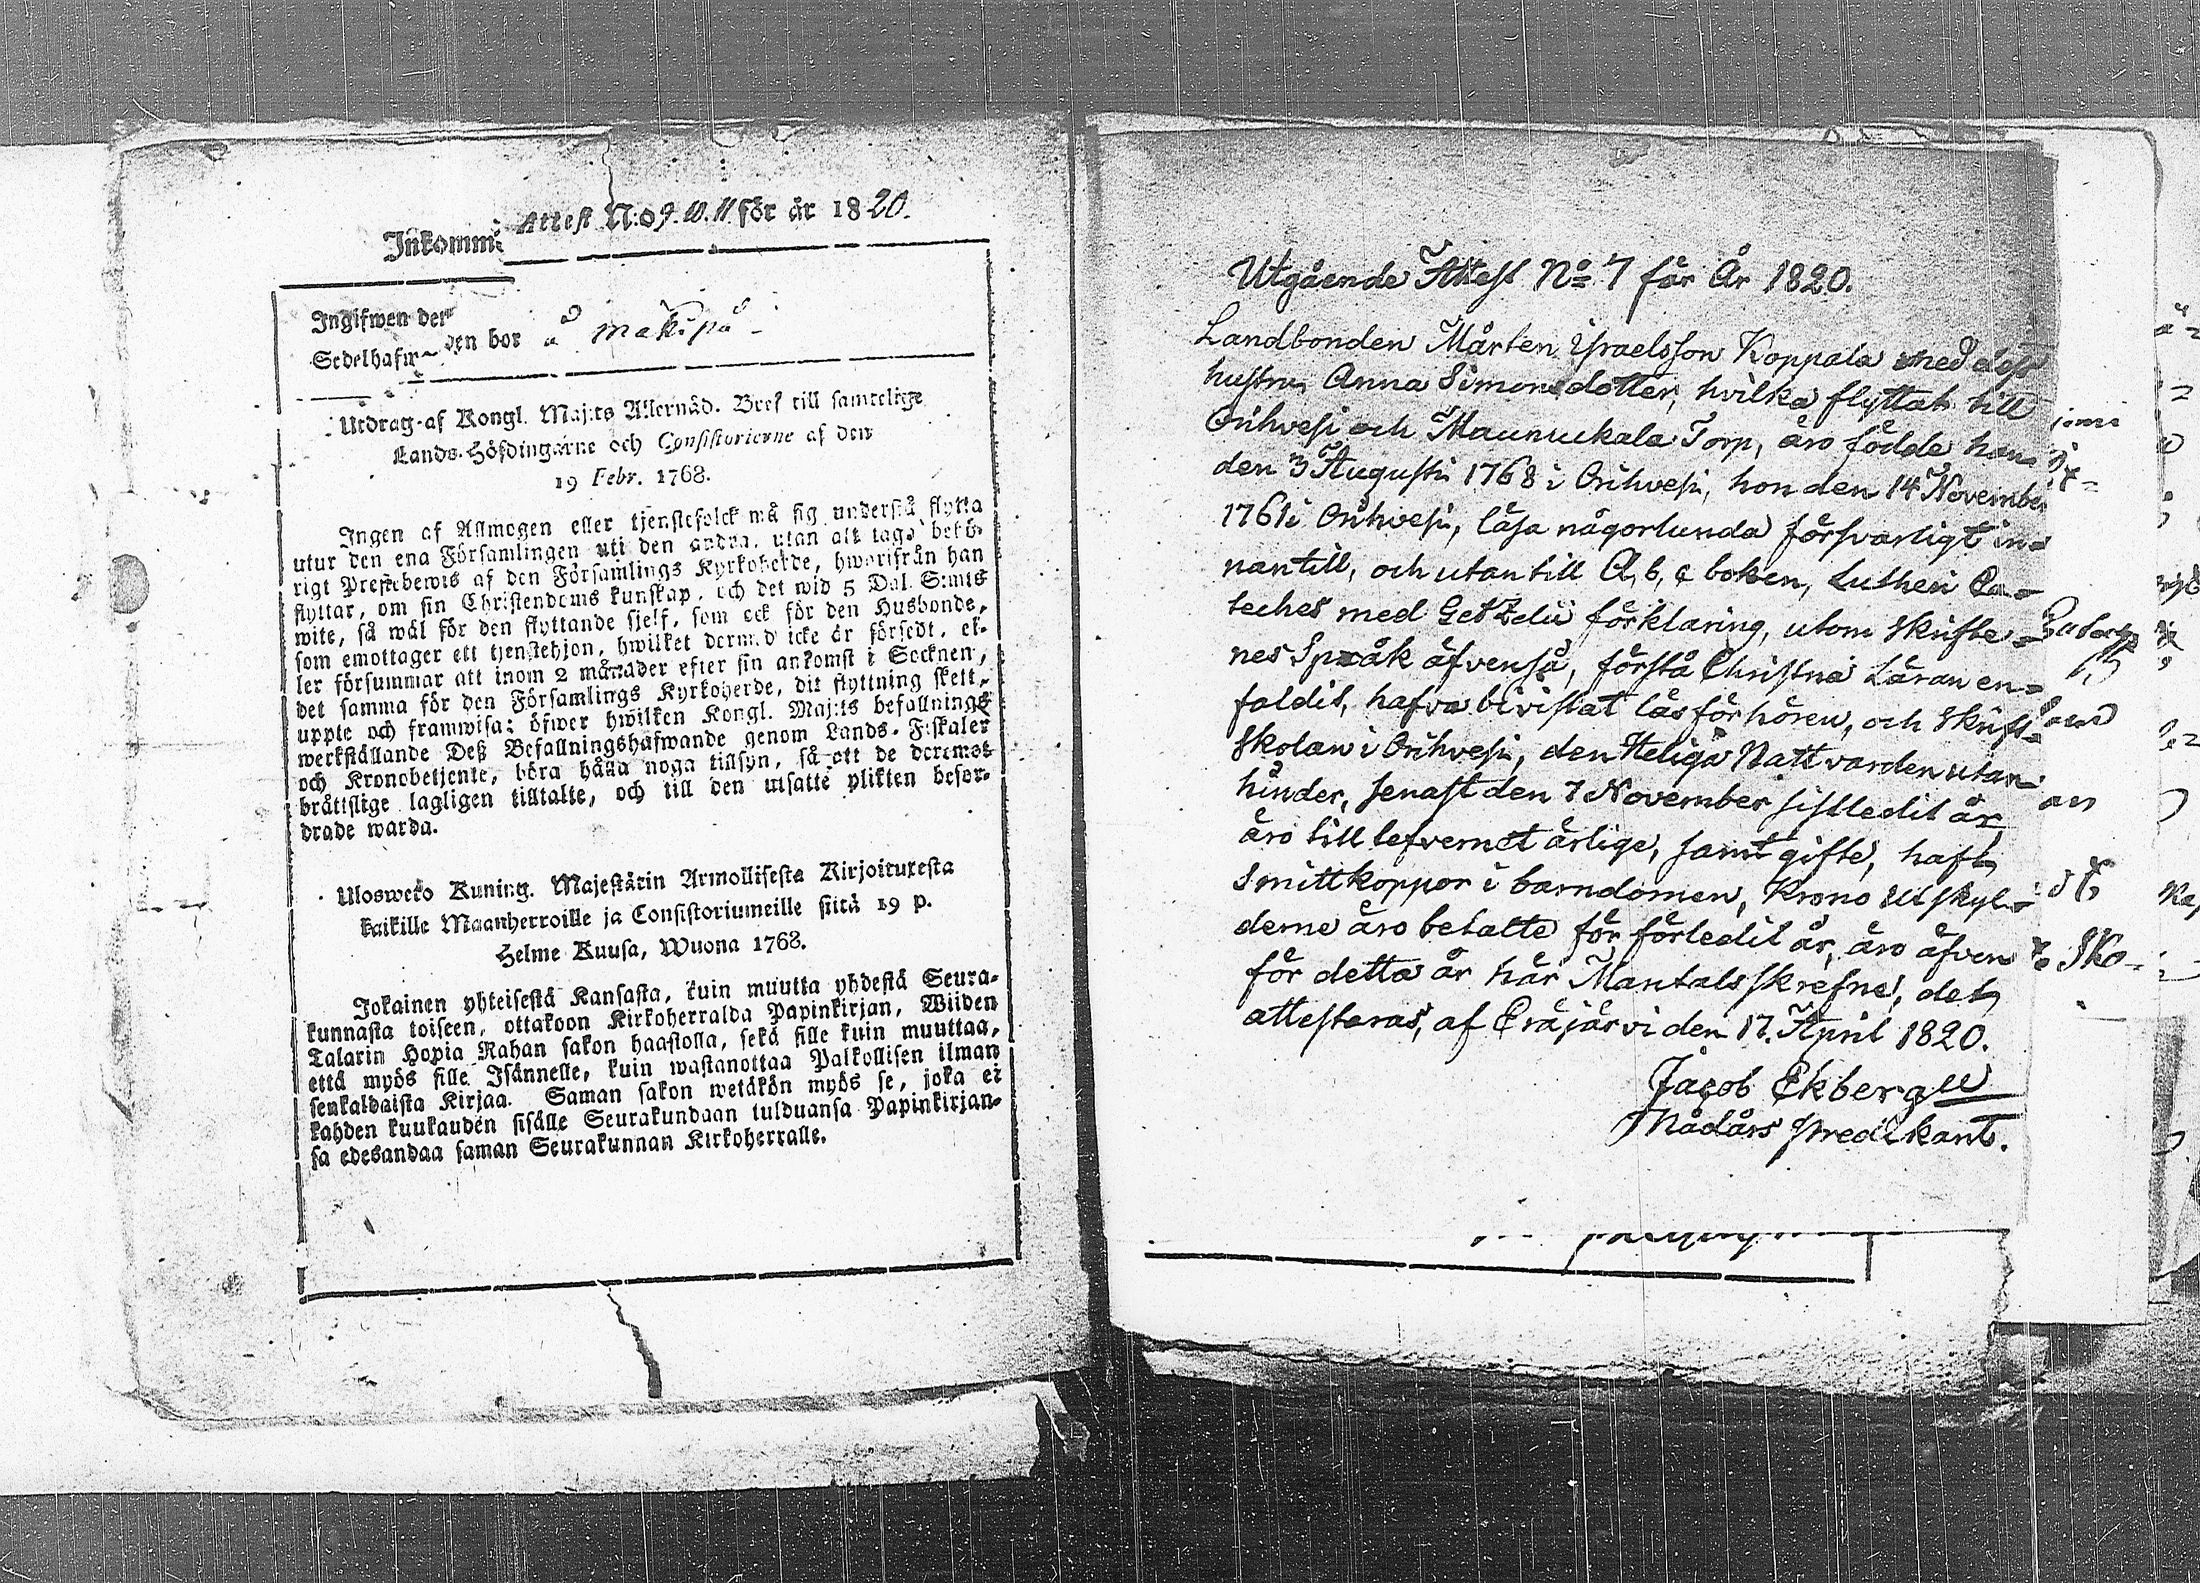 Inkomm:
Attest N:o 9. 10. 11 för år 1820.
Ingifwen der
Sedelhafw~
den bor å Mäkipä
Utdrag af Kongl. Maj:ts Allernåd. Bref till samtelige
Lands-Höfdingarne och Consistorierne af den
19 Febr. 1768.
Ingen af Allmogen eller tjenstefolck må sig understå flytta
utur den ena Församlingen uti den andra, utan att taga behö-
rigt Prestebewis af den Församlings Kyrkoherde, hwarifrån han
flyttar, om sin Christendoms kunskap, och det wid 5 Dal. S:mts
wite, så wäl för den flyttande sjelf, som ock för den Husbonde,
som emottager ett tjenstehjon, hwilket dermed icke är försedt, el-
ler försummar att inom 2 månader efter sin ankomst i Socknen,
det samma för den Församlings Kyrkoherde, dit flyttning skett,
uppte och framwisa: öfwer hwilken Kongl. Maj:ts befallnings
werkställande Deß Befallningshafwande genom Lands-Fiskaler
och Kronobetjente, böra hålla noga tillsyn, så att de deremot
bråttslige lagligen tilltalte, och till den utsatte plikten befor-
drade warda.
Ulosweto Kuning. Majestätin Armollisesta Kirjoituxesta
kaikille Maanherroille ja Consistoriumeille siitä 19 p.
Helme Kuusa, Wuona 1768.
Jokainen yhteisestä Kansasta, kuin muutta yhdestä Seura-
kunnasta toiseen, ottakoon Kirkoherralda Papinkirjan, Wiiden
Talarin Hopia Rahan sakon haastolla, sekä sille kuin muuttaa,
että myös sille Isännelle, kuin wastanottaa Palkollisen ilman
senkaldaista Kirjaa. Saman sakon wetäkön myös se, joka ei
kahden kuukauden sisälle Seurakundaan tulduansa Papinkirjan-
sa edesandaa saman Seurakunnan Kirkoherralle.
Utgående Attest No 7 för År 1820.
Landbonden Mårten Israelsson Koppala med dess
hustru Anna Simonsdotter, hvilka flyttat till
Orihvesi och Maunukala Torp, äro födde han
den 3 Augusti 1768 i Orihvesi, hon den 14 November
1761 i Orihvesi, läsa någorlunda försvarligt in-
nantill, och utantill A, b, c boken, Lutheri Ca-
teches med Getzelii förklaring, utom Skrifte-
nes Språk äfvenså, förstå Christna Läran en-
faldit, hafva bivistat läsförhören, och Skrift-
skolan i Orihvesi, den Heliga Nattvarden utan
hinder, senast den 7 November sistledit år,
äro till lefvernet ärlige, samt gifte, haft
Smittkoppor i barndomen, Krono Utskyl-
derne äro betalte för förledit år, äro äfven
för detta år här Mantalsskrefne, det
attesteras, af Eräjärvi den 17. April 1820.
Jacob Ekberg
Mådårs predikant.